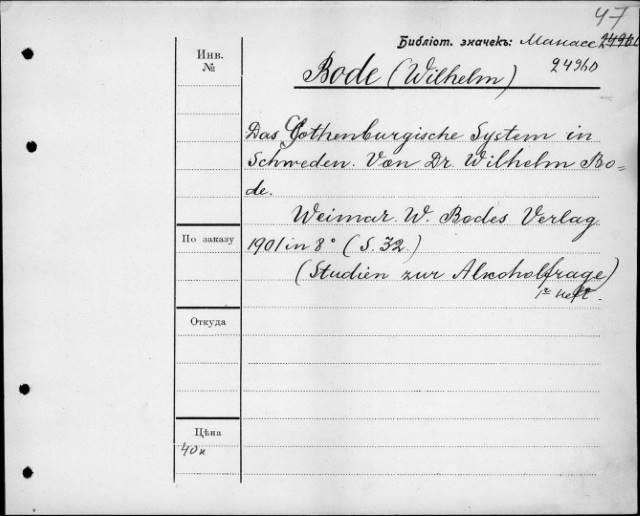 47
Библіот. значекъ: Манасс
24960
Инв.
№
Bode (Wilhelm)
Das Gothenburgische System in
Schweden. Von Dr. Wilhelm Bo=
de.
Weimar. W. Bodes Verlag.
По заказу
1901 in 8° (S. 32.)
(Studien zur Alkoholfrage)
1r Heft.
Откуда
Цѣна
40 к